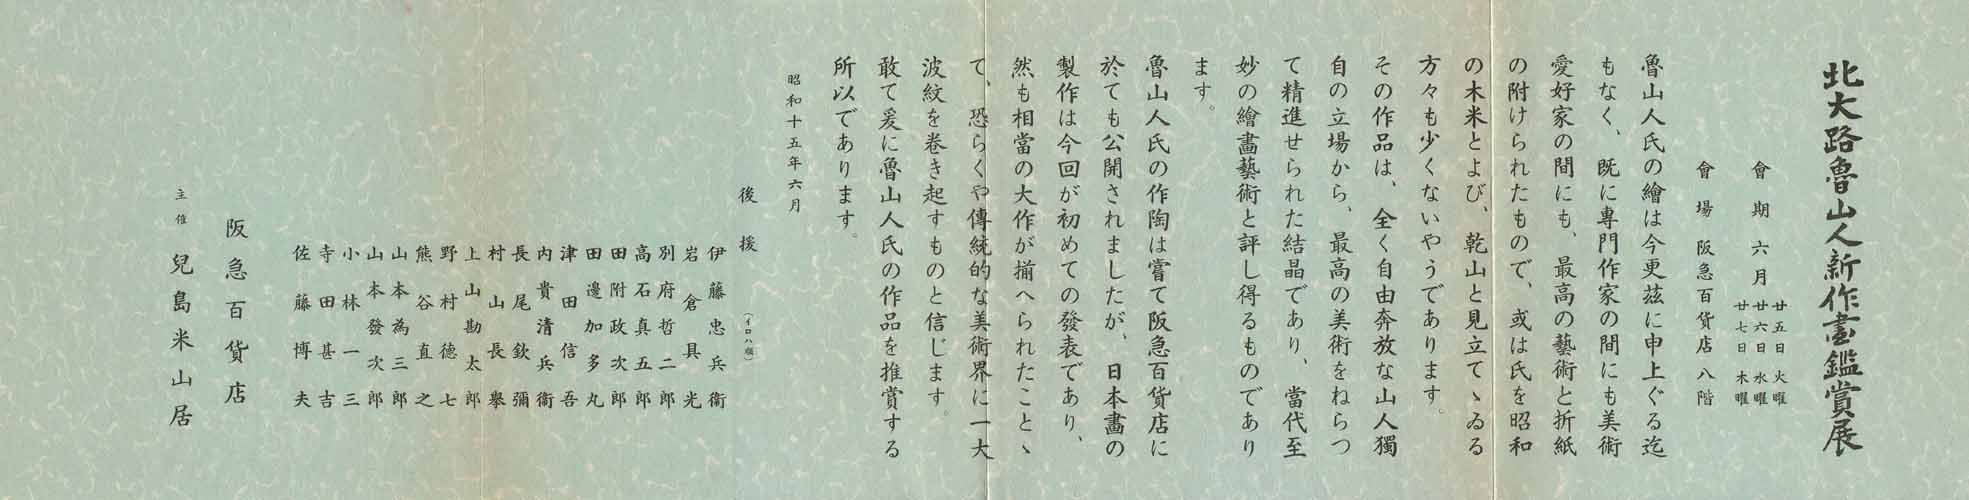 北大路魯山人新作畫鑑賞展
會期 六月 廿五日 火曜
廿六日 水曜
廿七日 木曜
會場 阪急百貨店八階
魯山人氏の繪は今更茲に申上ぐる迄
もなく、既に專門作家の間にも美術
愛好家の間にも、最高の藝術と折紙
の附けられたもので、或は氏を昭和
の木米とよび、乾山と見立てゝゐる
方々も少くないやうであります。
その作品は、全く自由奔放な山人獨
自の立場から、最高の美術をねらつ
て精進せられた結晶であり、當代至
妙の繪畫藝術と評し得るものであり
ます。
魯山人氏の作陶は嘗て阪急百貨店に
於ても公開されましたが、日本畫の
製作は今回が初めての發表であり、
然も相當の大作が揃へられたことゝ
て、恐らくや傳統的な美術界に一大
波紋を卷き起すものと信じます。
敢て爰に魯山人氏の作品を推賞する
所以であります。
昭和十五年六月
後援 (イロハ順)
伊藤忠兵衞
岩倉具光
別府哲二郎
高石真五郎
田附政次郎
田邊加多丸
津田信吾
內貴清兵衞
長尾欽彌
村山長擧
上山勘太郎
野村德七
熊谷直之
山本為三郎
山本發次郎
小林一三
寺田甚吉
佐藤博夫
阪急百貨店
主催 兒島米山居